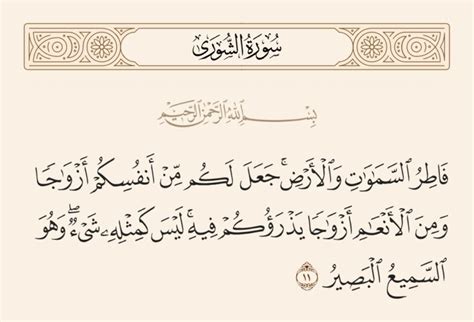 سُورَةُ الشُّورَى
بِسْمِ اللَّهِ الرَّحْمَٰنِ الرَّحِيمِ
فَاطِرُ السَّمَٰوَٰتِ وَالْأَرْضِ ۚ جَعَلَ لَكُم مِّنْ أَنفُسِكُمْ أَزْوَٰجًا
وَمِنَ الْأَنْعَٰمِ أَزْوَٰجًا يَذْرَؤُكُمْ فِيهِ ۚ لَيْسَ كَمِثْلِهِۦ شَىْءٌ ۖ وَهُوَ
السَّمِيعُ الْبَصِيرُ ١١